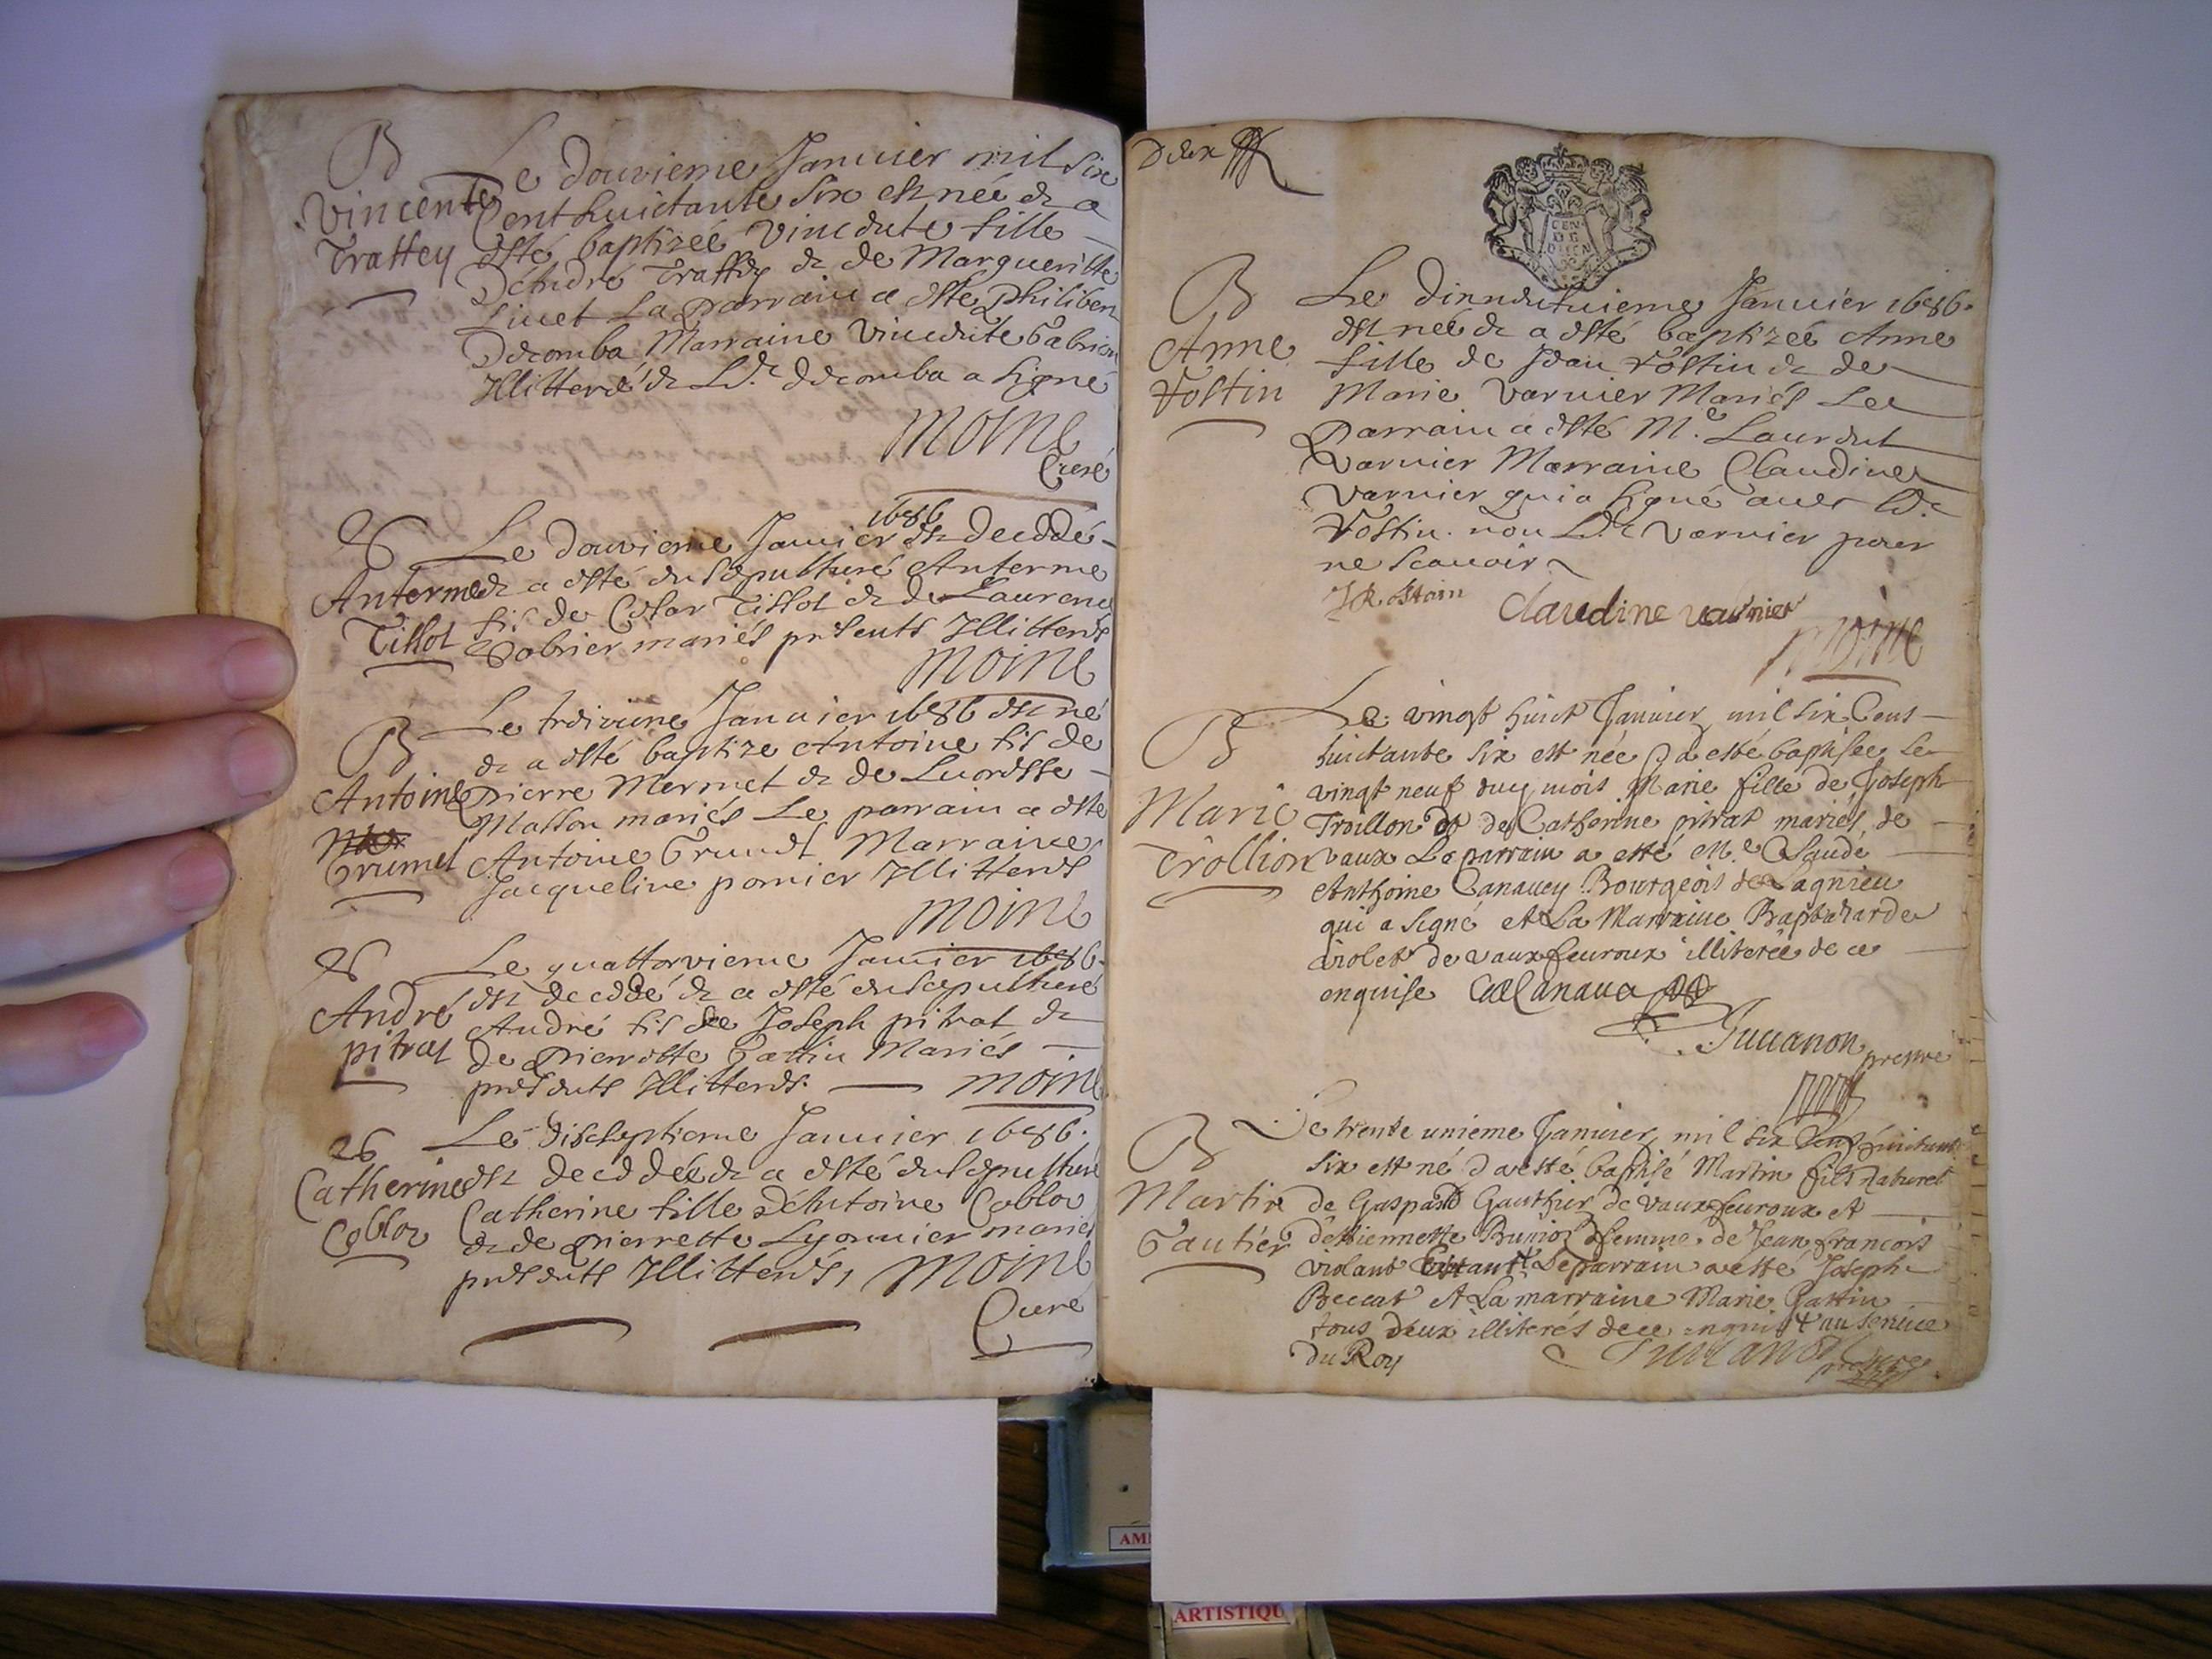 B
Vincente
Traffey
Le douzieme Janvier mil six
Cent huictante six est née & a
esté baptizée Vincente fille
D'André Traffey & de Margueritte
Livet Le parrain a esté Philibert
Decomba Marraine Vincente Gabrion
Illitteré & Ledt Decomba a signé
Moine
Curé
Anterme
Tissot
1686
Le douzieme Janvier est decedé
& a esté ensepulturé Anterme
fis de Cesar Tissot & de Laurence
Gobrier mariés presents Illitterés
Moine
B
Antoine
Grumel
Le treizieme Janvier 1686 est né
& a esté baptize Antoine fis de
Pierre Mermet & de Lucresse
Masson mariés Le parrain a esté
Antoine Grumel Marraine
Jacqueline pomier Illitterés
Moine
André
pitrat
Le quattorzieme Janvier 1686.
est decedé & a esté ensepulturé
André fis de Joseph pitrat &
de pierrette Gattin Mariés
presents Illitterés. Moine
Catherine
Cobloz
Le disseptieme Janvier 1686.
est decedée & a esté ensepulturé
Catherine fille d'Antoine Cobloz
& de pierrette Lyonnier mariés
presents Illitterés, Moine
Curé
Dix
GEN
DE
B
Anne
Tostin
Le dixneufuieme Janvier 1686.
est née & a esté baptizée Anne
fille de Jean Tostin & de
Marie Varnier Mariés Le
parrain a esté Me. Laurent
Varnier Marraine Claudine
Varnier qui a signé avec led.
Tostin. non Ledt Varnier pour
ne scavoir
Claudine varnier
Moine
B
Marie
Trollion
Le vingt huict Janvier mil six Cens
huictante six est née & a esté baptisée le
vingt neuf duq mois Marie fille de Joseph
Troillon & de Catherine pitrat mariés de
vaux Le parrain a esté Me Claude
Anthoine Canavey Bourgeois de Lagnieu
qui a signé et La Marraine
violet de vaux feuroux illiterée de ce
enquise Canava
Juvanon prestre
B
Martin
Gautier
Le trente unieme Janvier mil six Cens huictante
six est né & a esté baptisé Martin fils naturel
de Gaspard Gauthier de vaux feuroux et
d'estiennette femme de Jean francois
violand Le parrain a esté Joseph
Beccat et La marraine Marie Gattin
tous deux illiterés de ce enquis + au service
du Roy
Juvanon prestre
AM
ARTISTIQU